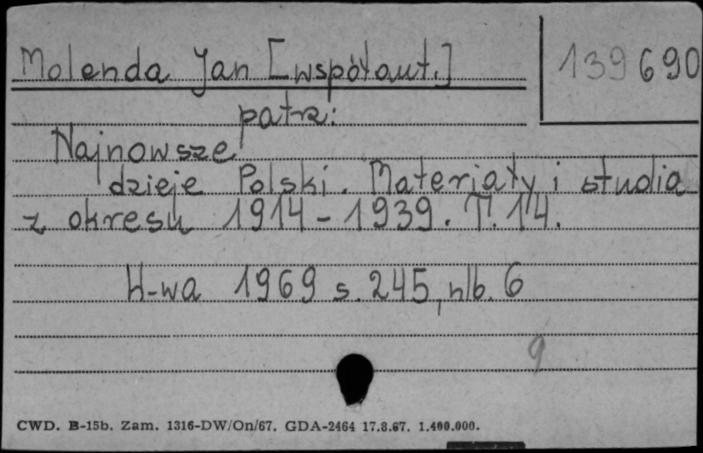 Molenda Jan [współaut.]
139690
patrz:
Najnowsze
dzieje Polski. Materiały i studia
z okresu 1914-1939. T. 14.
W-wa 1969 s. 245, nlb. 6
9
CWD. B-15b. Zam. 1316-DW/On/67. GDA-2464 17.8.67. 1.400.000.